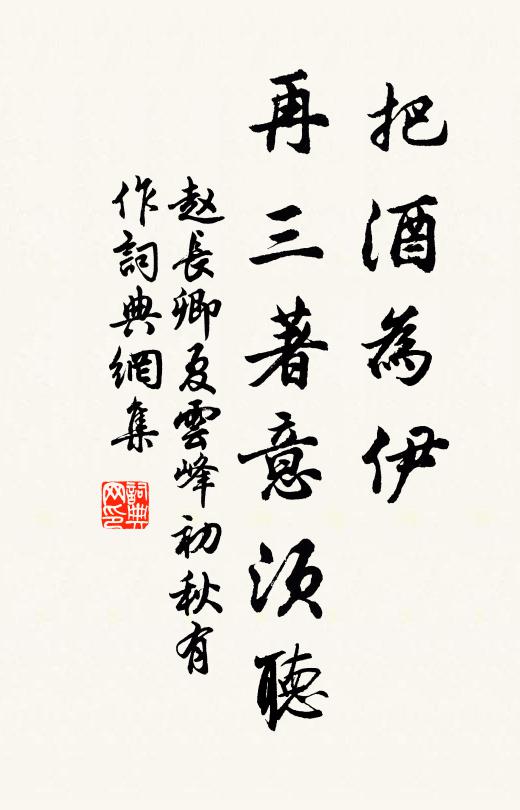 把酒為伊
再三著意須聽
赵長卿夏雲峰初秋有
作詞典網集
詞典
网印